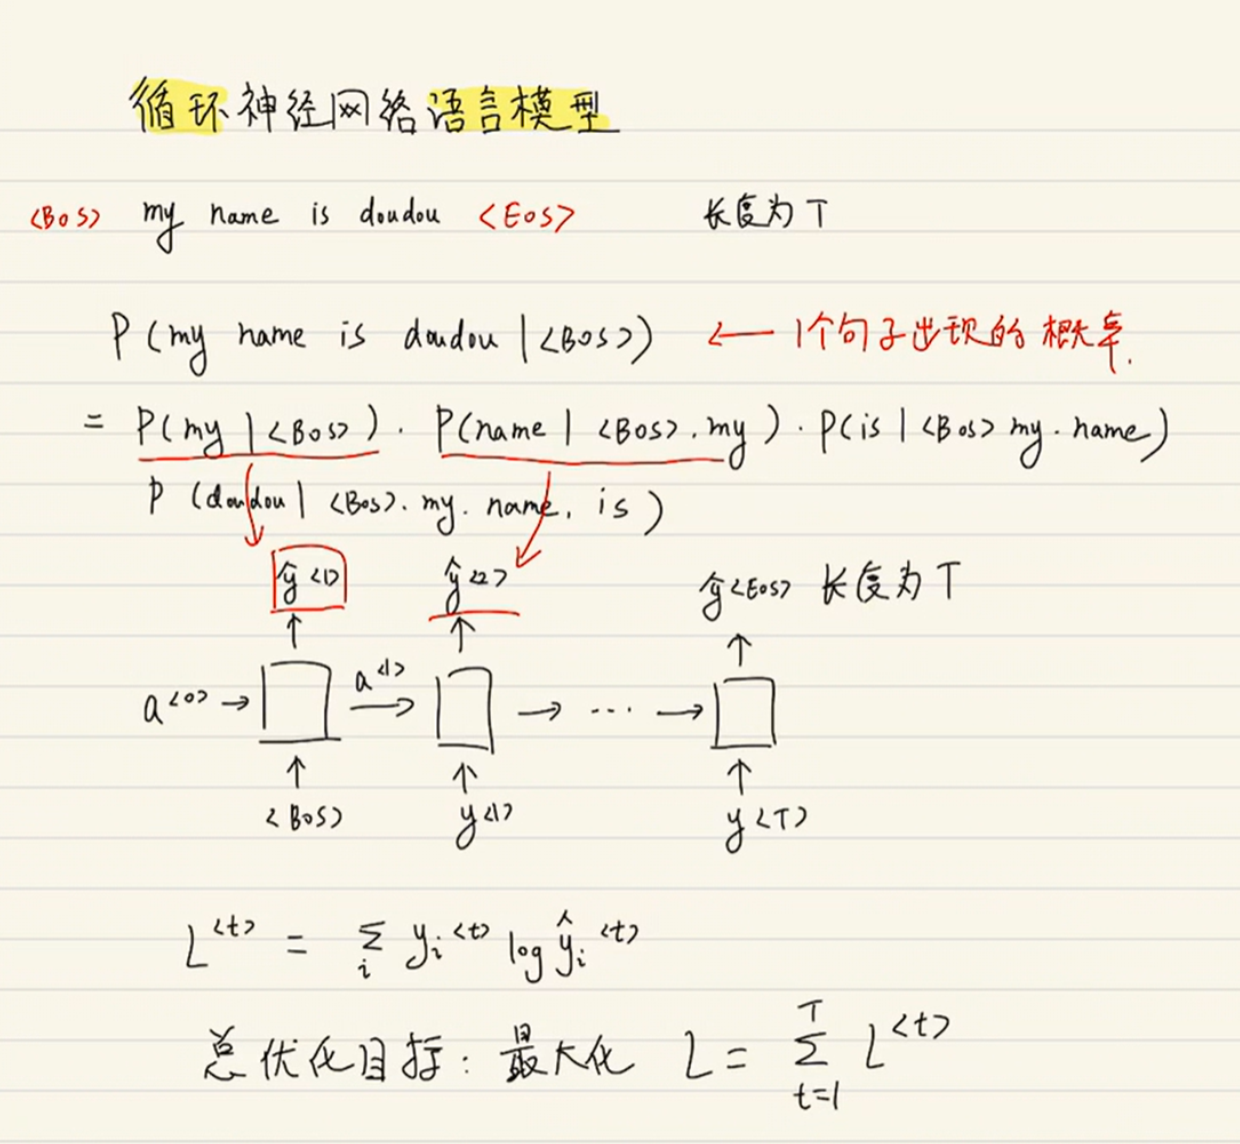 循环神经网络语言模型
<BOS> my name is doudou <EOS> 长度为 T
P(my name is doudou | <BOS>) ← 1个句子出现的概率.
= P(my | <BOS>) · P(name | <BOS>. my) · P(is | <BOS> my. name)
P(doudou | <BOS>. my. name. is)
ŷ<1> ŷ<2> ŷ<EOS> 长度为 T
a<0> → a<1> → → ··· →
<BOS> y<1> y<T>
L<t> = Σ_i y_i<t> log ŷ_i<t>
总优化目标: 最大化 L = Σ_{t=1}^{T} L<t>